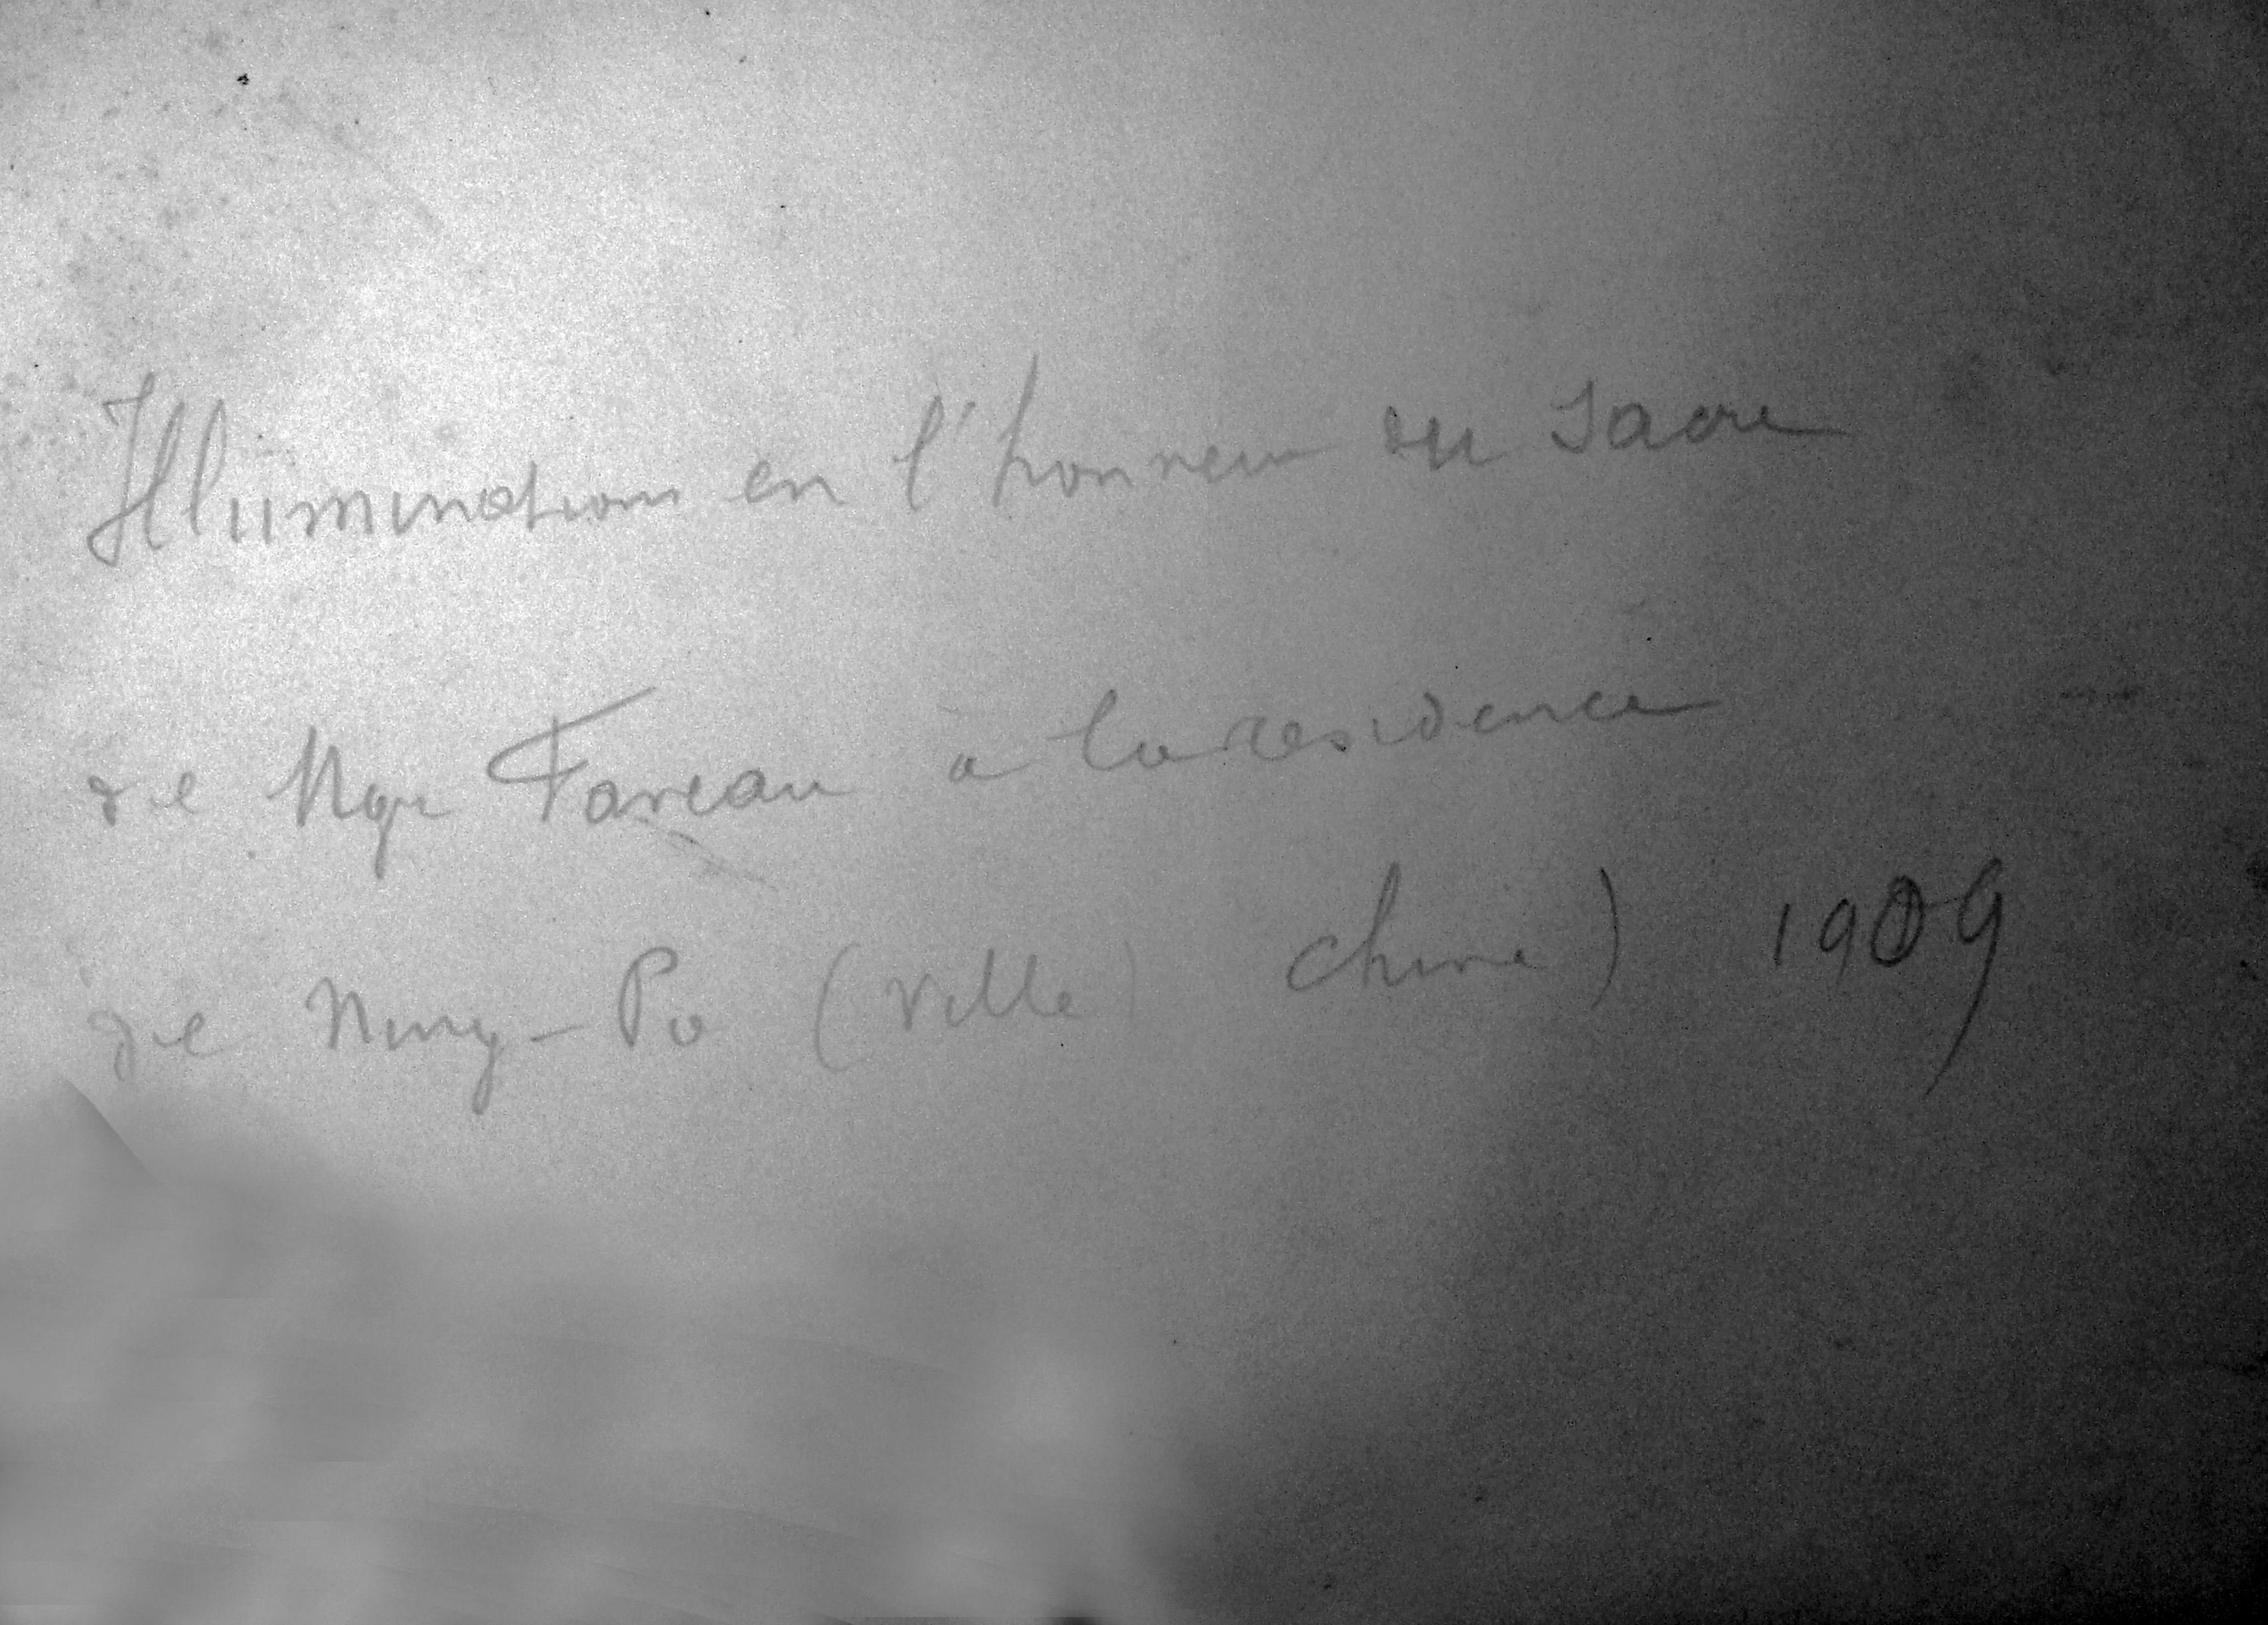 Illuminations en l'honneur du sacre
de Mgr Faveau à la residence
de Ning-Po (Ville) Chine) 1909